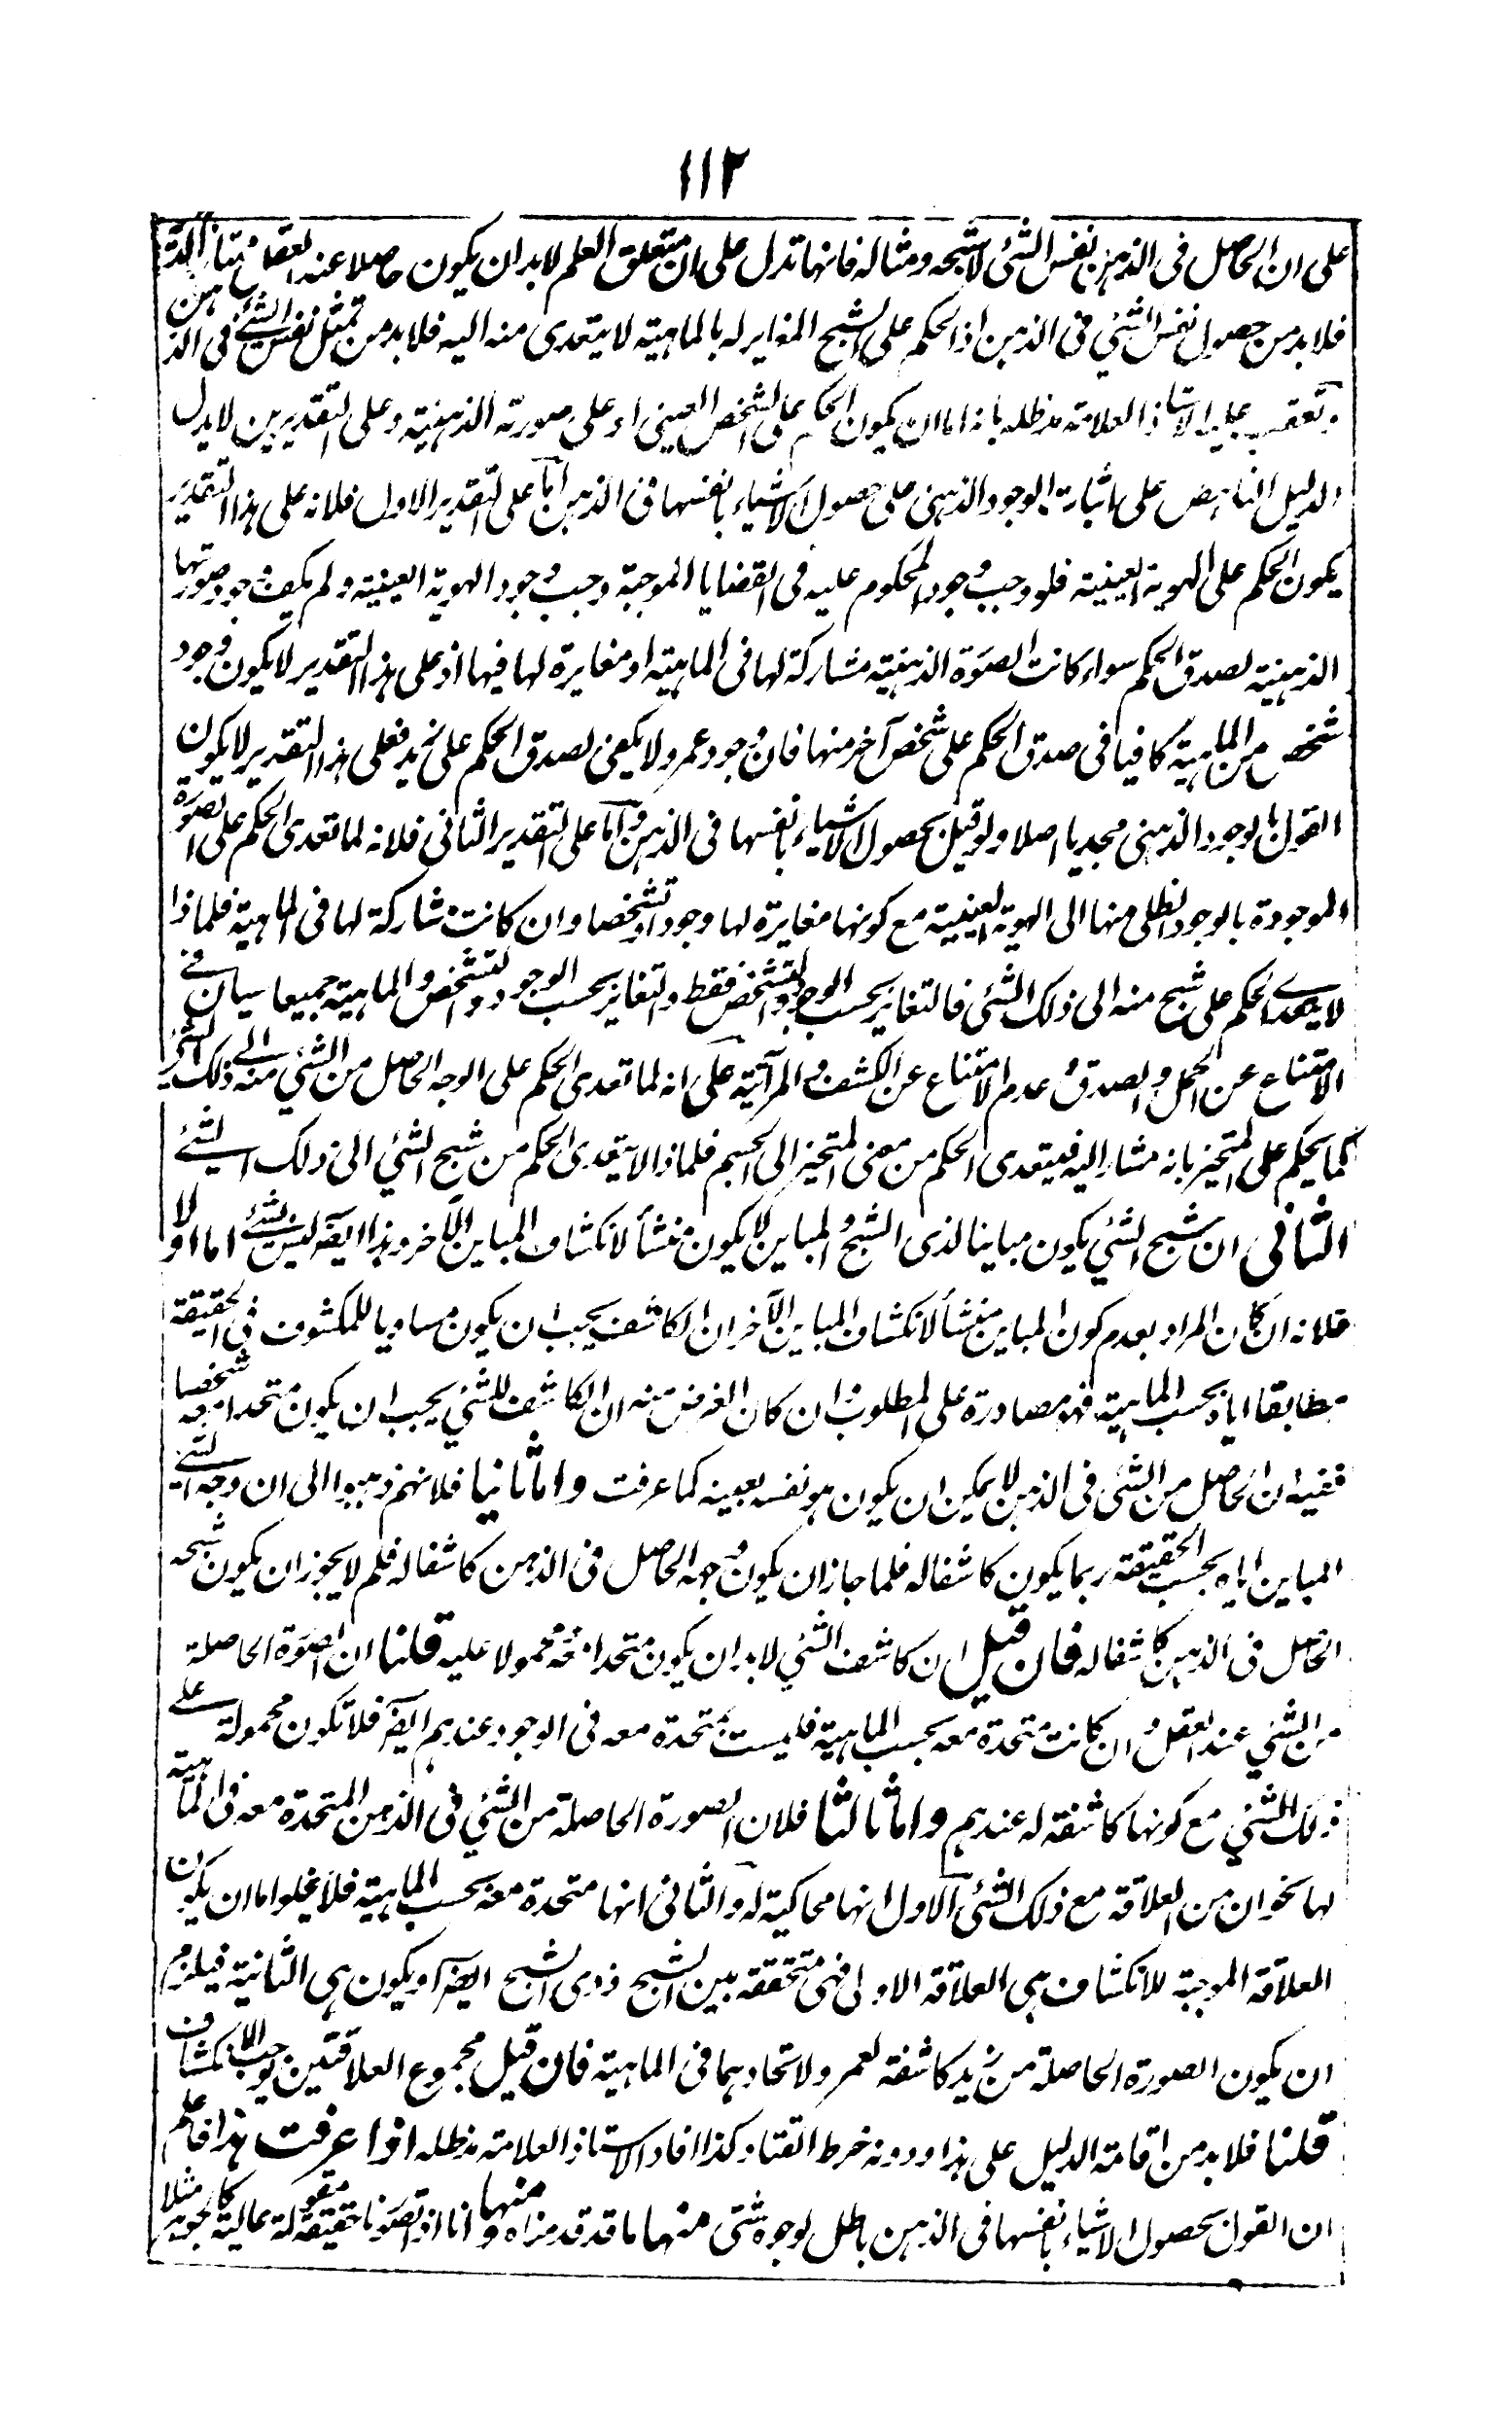 ١١٢
على ان الحاصل فى الذهن نفس الشئ لا شبحه ومثاله فانها تدل على ان متعلق العلم لا بد ان يكون حاصلا عند العقل ممتازا لديه
فلا بد من حصول نفس الشئ فى الذهن اذ الحكم على الشبح المغاير له بالماهية لا يتعدى منه اليه فلا بد من تمثل نفس الشئ فى الذهن
وتعقب عليه الاستاذ العلامة مدظله بانه اما ان يكون الحكم على الشخص العينى او على صورته الذهنية وعلى التقديرين لا يدل
الدليل الناهض على اثبات الوجود الذهنى على حصول الاشياء بانفسها فى الذهن اما على التقدير الاول فلانه على هذا التقدير
يكون الحكم على الهوية العينية فلو وجب وجود المحكوم عليه فى القضايا الموجبة وجب وجود الهوية العينية ولم يكف وجود صورتها
الذهنية لصدق الحكم سواء كانت الصورة الذهنية مشاركة لها فى الماهية او مغايرة لها فيها اذ على هذا التقدير لا يكون وجود
شخص من الماهية كافيا فى صدق الحكم على شخص آخر منها فان وجود عمرو لا يكفى لصدق الحكم على زيد فعلى هذا التقدير لا يكون
القول بالوجود الذهنى مجديا اصلا ولو قيل بحصول الاشياء بانفسها فى الذهن واما على التقدير الثانى فلانه لما تعدى الحكم على الصورة
الموجودة بالوجود الظلى منها الى الهوية العينية مع كونها مغايرة لها وجودا وتشخصا وان كانت مشاركة لها فى الماهية فلماذا
لا يتعدى الحكم على شبح منه الى ذلك الشئ فالتغاير بحسب الوجود والتشخص فقط والتغاير بحسب الوجود والتشخص والماهية جميعا سيان فى
الامتناع عن الحمل والصدق وعدم الامتناع عن الكشف والمرآتية على انه لما تعدى الحكم على الوجه الحاصل من الشئ منه الى ذلك الشئ
كما يحكم على المتحيز بانه مشار اليه فيتعدى الحكم من معنى المتحيز الى الجسم فلماذا لا يتعدى الحكم من شبح الشئ الى ذلك الشئ
الثانى ان شبح الشئ يكون مباينا لذى الشبح والمباين لا يكون منشأ لانكشاف المباين الآخر وهذا ايضا ليس بشئ اما اولا
فلانه ان كان المراد بعدم كون المباين منشأ لانكشاف المباين الآخر ان الكاشف يجب ان يكون مساويا للمكشوف فى الحقيقة
مطابقا اياه بحسب الماهية فهو مصادرة على المطلوب وان كان الغرض منه ان الكاشف للشئ يجب ان يكون متحدا معه شخصا
ففيه ان الحاصل من الشئ فى الذهن لا يمكن ان يكون هو نفسه بعينه كما عرفت واما ثانيا فلانهم ذهبوا الى ان وجه الشئ
المباين اياه بحسب الحقيقة ربما يكون كاشفا له فلما جاز ان يكون وجهه الحاصل فى الذهن كاشفا له فلم لا يجوز ان يكون شبحه
الحاصل فى الذهن كاشفا له فان قيل ان كاشف الشئ لا بد ان يكون متحدا معه محمولا عليه قلنا ان الصورة الحاصلة
من الشئ عند العقل وان كانت متحدة معه بحسب الماهية فليست متحدة معه فى الوجود عندهم ايضا فلا تكون محمولة على
ذلك الشئ مع كونها كاشفة له عندهم واما ثالثا فلان الصورة الحاصلة من الشئ فى الذهن المتحدة معه فى الماهية
لها نحوان من العلاقة مع ذلك الشئ الاول انها محاكية له والثانى انها متحدة معه بحسب الماهية فلا يخلوا اما ان يكون
العلاقة الموجبة للانكشاف هى العلاقة الاولى فهى متحققة بين الشبح وذى الشبح ايضا او يكون هى الثانية فيلزم
ان يكون الصورة الحاصلة من زيد كاشفة لعمرو لاتحادهما فى الماهية فان قيل مجموع العلاقتين يوجب الانكشاف
قلنا فلا بد من اقامة الدليل على هذا ودونه خرط القتاد كذا افاد الاستاذ العلامة مدظله اذا عرفت هذا فاعلم
ان القول بحصول الاشياء بانفسها فى الذهن باطل لوجوه شتى منها ما قد قدمناه ومنها انا اذا تصورنا حقيقة مقولة عالية كالجوهر مثلا